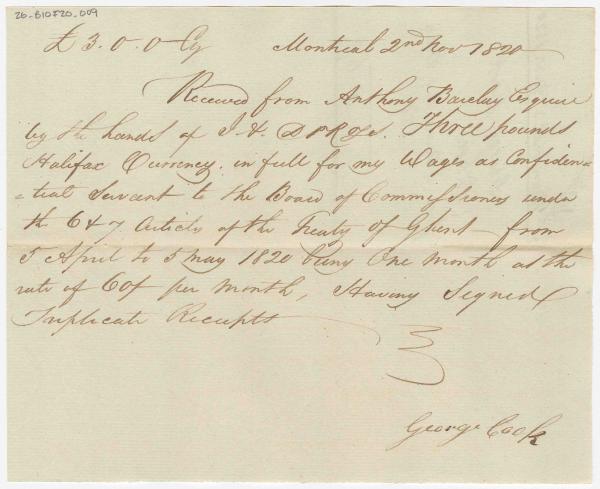 26-B10F20-009
£3.0.0 Cy Montreal 2nd Nov 1820
Received from Anthony Barclay Esquire
by the hands of Three pounds
Halifax Currency in full for my Wages as Confiden=
=tial Servant to the Board of Commissioners under
the 6 & 7 Articles of the Treaty of Ghent from
5 April to 5 May 1820 being One Month at the
rate of 60/ per Month, Having Signed
Triplicate Receipts
George Cook